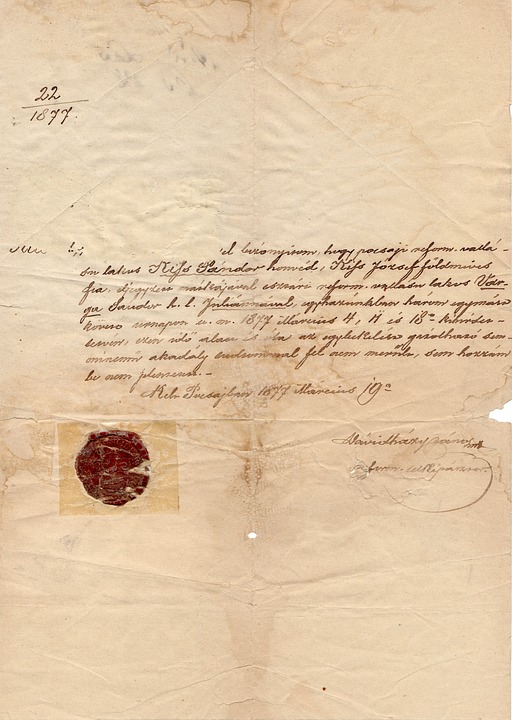 22
1877.
bizonyitom, hogy pocsaji reform. vallá-
su lakos Kiss Sándor honvéd, Kiss József földmives
fia, eljegyzett mátkájával reform. vallásu lakos Var-
ga Sándor h. l. Juliánnával, egyházunkban három egymást
követő ünnapon u. m. 1877 Március 4, 11 és 18án kihirdet-
tetvén, ezen idő alatt és óta az egybekelést gátolható sem-
minémü akadály tudtommal fel nem merült, sem hozzám
be nem jelentetett.
Kelt Pocsajban 1877 Március 19én
Dávidházy János
reform. lelkipásztor.